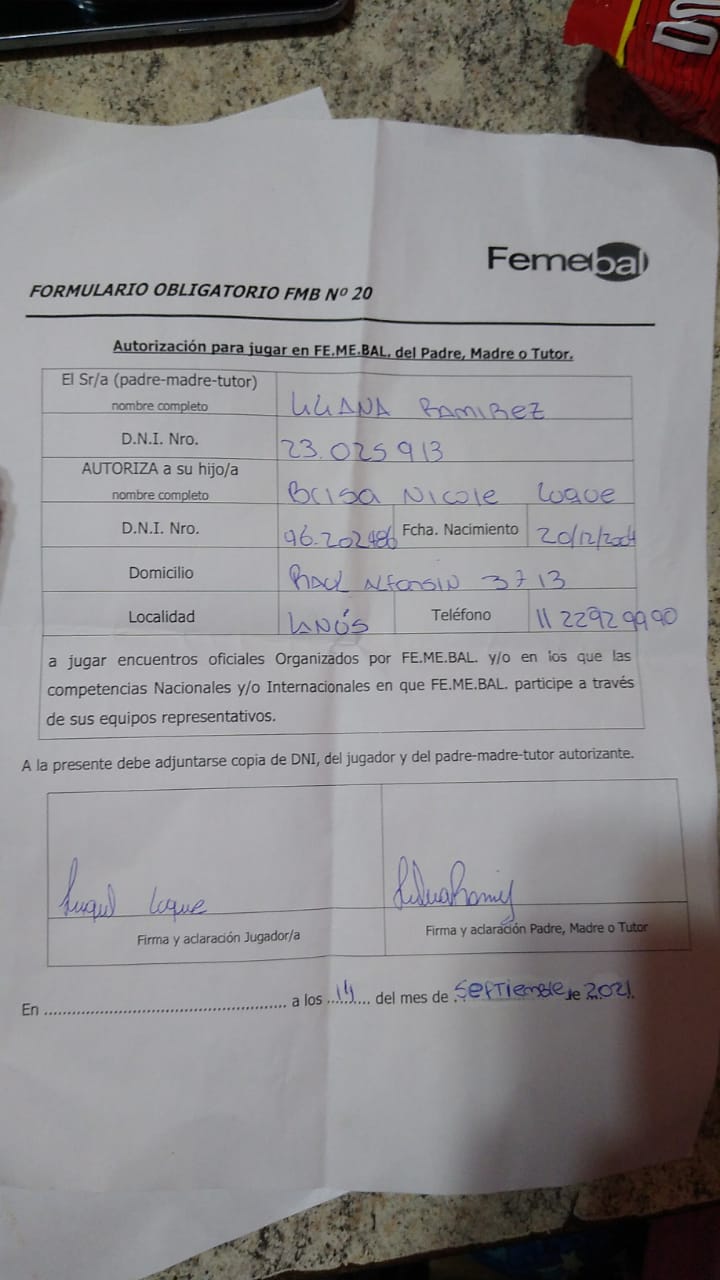 Femebal
FORMULARIO OBLIGATORIO FMB Nº 20
Autorización para jugar en FE.ME.BAL. del Padre, Madre o Tutor.
El Sr/a (padre-madre-tutor)
nombre completo
LILIANA RAMIREZ
D.N.I. Nro.
23.025913
AUTORIZA a su hijo/a
nombre completo
Brisa Nicole Luque
D.N.I. Nro.
96.202486
Fcha. Nacimiento
20/12/2004
Domicilio
RAUL ALFONSIN 3713
Localidad
LANÚS
Teléfono
11 22929990
a jugar encuentros oficiales Organizados por FE.ME.BAL. y/o en los que las
competencias Nacionales y/o Internacionales en que FE.ME.BAL. participe a través
de sus equipos representativos.
A la presente debe adjuntarse copia de DNI, del jugador y del padre-madre-tutor autorizante.
Luque
Firma y aclaración Jugador/a
Firma y aclaración Padre, Madre o Tutor
En ................................................ a los ..14.... del mes de .Septiembre. de 2021.